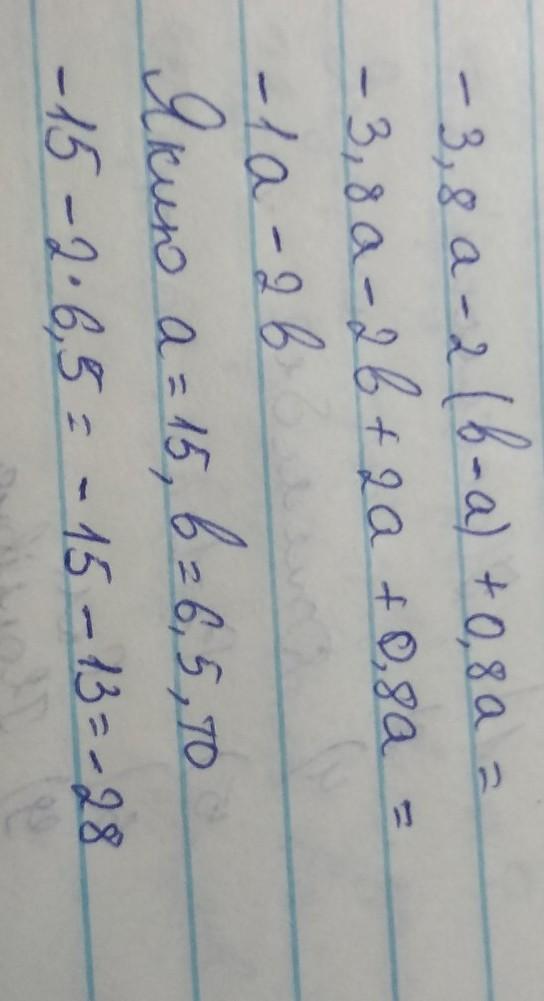 - 3,8a - 2(b - a) + 0,8a =
- 3,8a - 2b + 2a + 0,8a =
- 1a - 2b
Якщо a = 15, b = 6,5, то
- 15 - 2 · 6,5 = - 15 - 13 = - 28